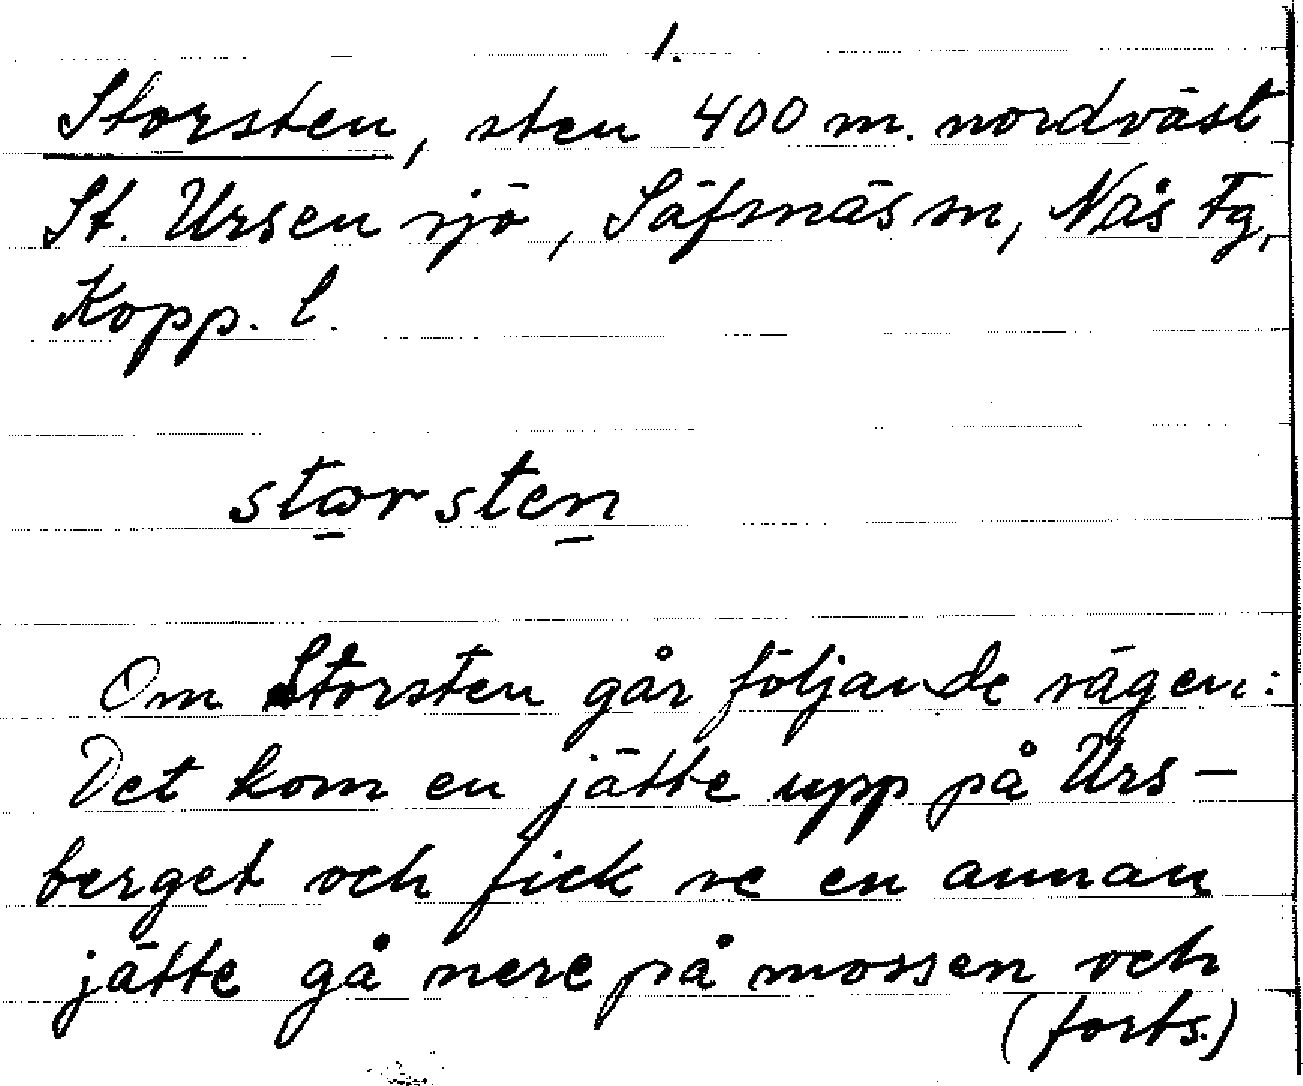 1.
Storsten, sten 400 m. nordväst
St. Ursen sjö, Säfsnäs sn, Nås Fg,
Kopp. l.
storsten
Om Storsten går följande sägen:
Det kom en jätte upp på Urs-
berget och fick se en annan
jätte gå nere på mossen och
(forts.)